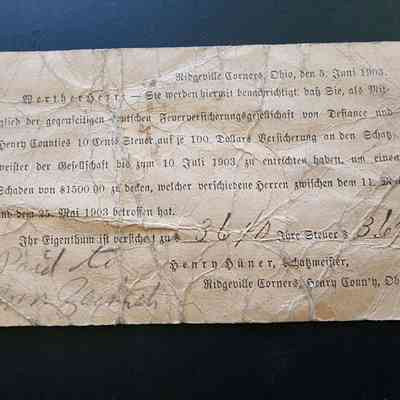 Ridgeville Corners, Ohio, den 5. Juni 1903.
Werther Herr:— Sie werden hiermit benachrichtigt, daß Sie, als Mit-
glied der gegenseitigen deutschen Feuerversicherungsgesellschaft von Defiance und
Henry Counties 10 Cents Steuer auf je 100 Dollars Versicherung an den Schatz-
meister der Gesellschaft bis zum 10 Juli 1903 zu entrichten haben, um einen
Schaden von $1500 00 zu decken, welcher verschiedene Herren zwischen dem 11. M
und dem 25. Mai 1903 betroffen hat.
Ihr Eigenthum ist versichert zu $ 3610 Ihre Steuer $ 3.6
Paid to
Henry Hüner, Schatzmeister,
Ridgeville Corners, Henry County, Oh